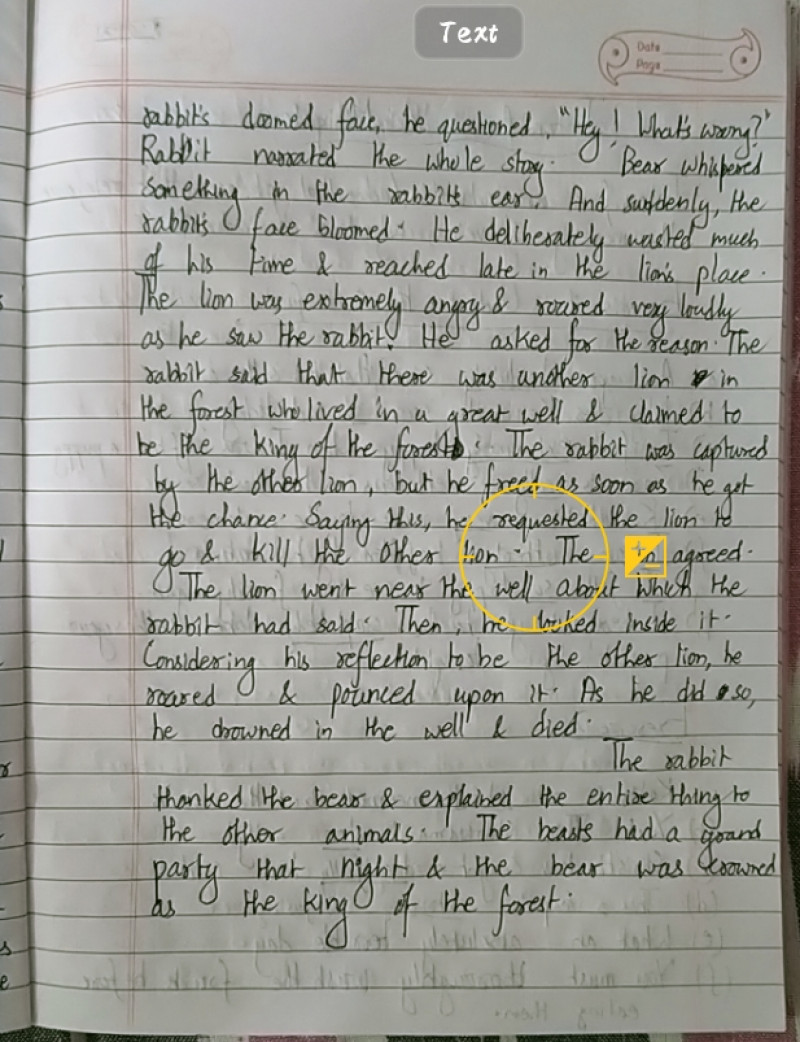 Text
Date
Page
rabbit's doomed face, he questioned, "Hey! What's wrong?"
Rabbit narrated the whole story. Bear whispered
something in the rabbit's ear. And suddenly, the
rabbit's face bloomed. He deliberately wasted much
of his time & reached late in the lion's place.
The lion was extremely angry & roared very loudly
as he saw the rabbit. He asked for the reason. The
rabbit said that there was another lion in
the forest who lived in a great well & claimed to
be the king of the forest. The rabbit was captured
by the other lion, but he freed as soon as he got
the chance. Saying this, he requested the lion to
go & kill the other lion. The agreed.
The lion went near the well about which the
rabbit had said. Then, he looked inside it.
Considering his reflection to be the other lion, he
roared & pounced upon it. As he did so,
he drowned in the well & died.
The rabbit
thanked the bear & explained the entire thing to
the other animals. The beasts had a grand
party that night & the bear was crowned
as the king of the forest.